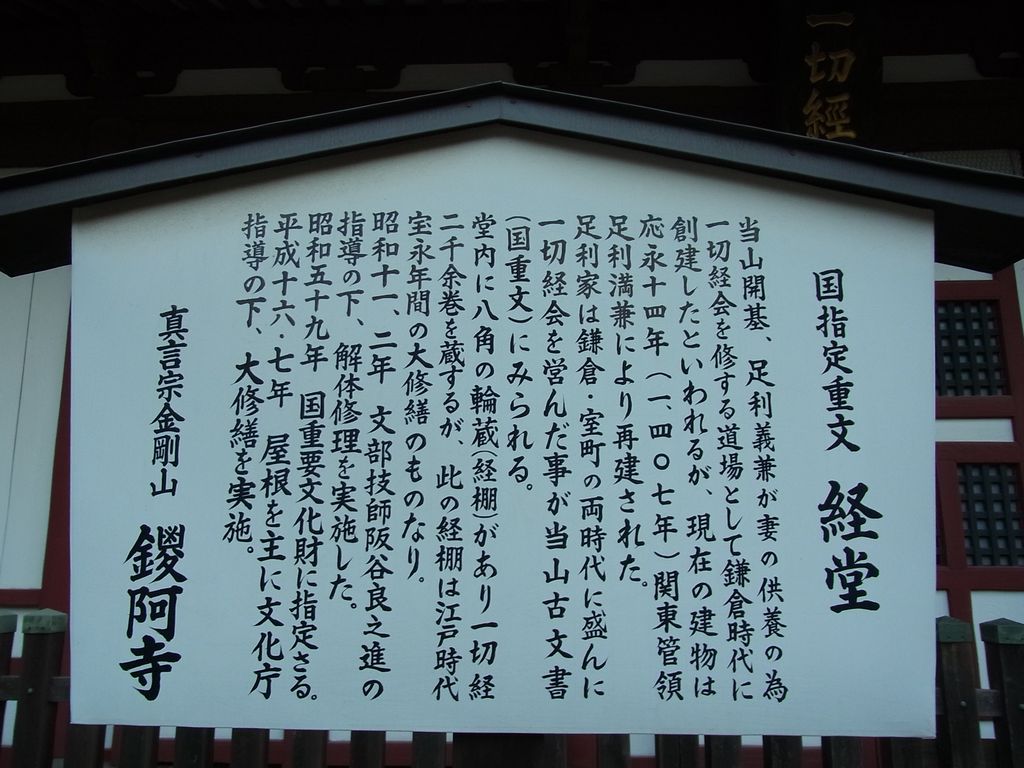 一切經
国指定重文 経堂
当山開基、足利義兼が妻の供養の為
一切経会を修する道場として鎌倉時代に
創建したといわれるが、現在の建物は
応永十四年(一、四〇七年)関東管領
足利満兼により再建された。
足利家は鎌倉・室町の両時代に盛んに
一切経会を営んだ事が当山古文書
(国重文)にみられる。
堂内に八角の輪蔵(経棚)があり一切経
二千余巻を蔵するが、此の経棚は江戸時代
宝永年間の大修繕のものなり。
昭和十一、二年 文部技師阪谷良之進の
指導の下、解体修理を実施した。
昭和五十九年 国重要文化財に指定さる。
平成十六・七年 屋根を主に文化庁
指導の下、大修繕を実施。
真言宗金剛山 鑁阿寺